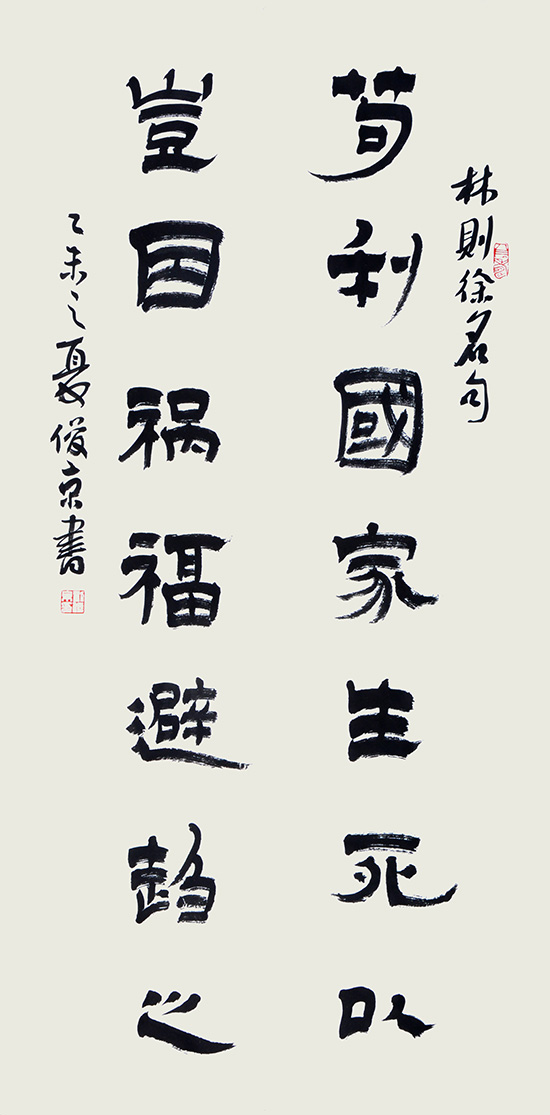 林則徐名句
苟利國家生死以
豈因祸福避趋之
乙未之夏俊京書